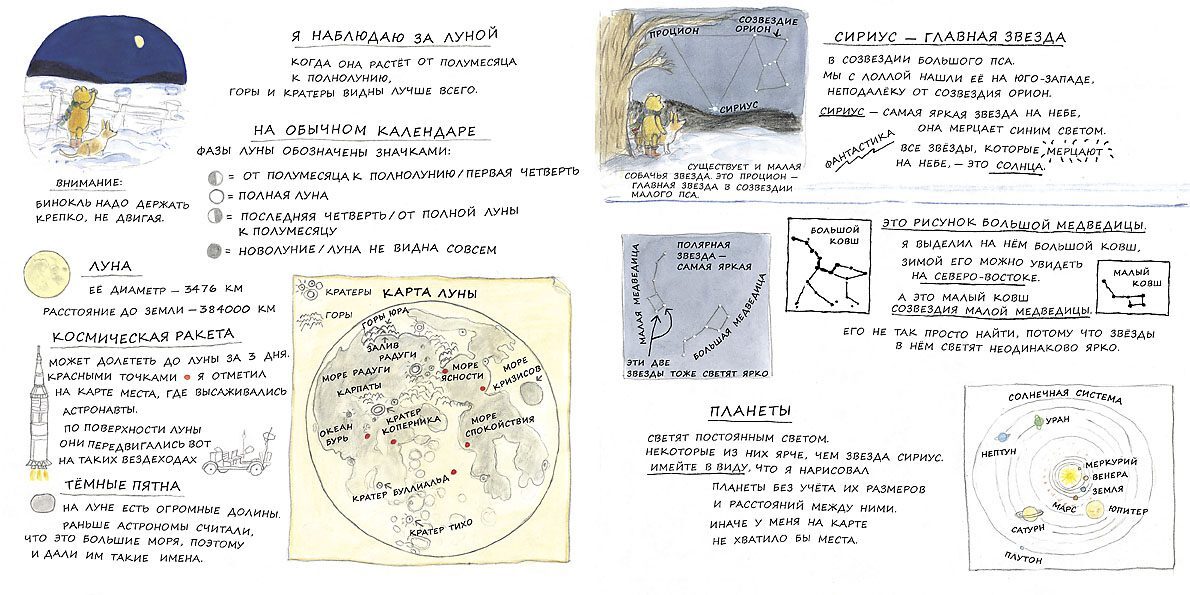 Я НАБЛЮДАЮ ЗА ЛУНОЙ
КОГДА ОНА РАСТЁТ ОТ ПОЛУМЕСЯЦА
К ПОЛНОЛУНИЮ,
ГОРЫ И КРАТЕРЫ ВИДНЫ ЛУЧШЕ ВСЕГО.
НА ОБЫЧНОМ КАЛЕНДАРЕ
ФАЗЫ ЛУНЫ ОБОЗНАЧЕНЫ ЗНАЧКАМИ:
= ОТ ПОЛУМЕСЯЦА К ПОЛНОЛУНИЮ/ПЕРВАЯ ЧЕТВЕРТЬ
= ПОЛНАЯ ЛУНА
= ПОСЛЕДНЯЯ ЧЕТВЕРТЬ/ОТ ПОЛНОЙ ЛУНЫ
К ПОЛУМЕСЯЦУ
= НОВОЛУНИЕ/ЛУНА НЕ ВИДНА СОВСЕМ
ВНИМАНИЕ:
БИНОКЛЬ НАДО ДЕРЖАТЬ
КРЕПКО, НЕ ДВИГАЯ.
ЛУНА
ЕЁ ДИАМЕТР – 3476 КМ
РАССТОЯНИЕ ДО ЗЕМЛИ – 384000 КМ
КОСМИЧЕСКАЯ РАКЕТА
МОЖЕТ ДОЛЕТЕТЬ ДО ЛУНЫ ЗА 3 ДНЯ.
КРАСНЫМИ ТОЧКАМИ Я ОТМЕТИЛ
НА КАРТЕ МЕСТА, ГДЕ ВЫСАЖИВАЛИСЬ
АСТРОНАВТЫ.
ПО ПОВЕРХНОСТИ ЛУНЫ
ОНИ ПЕРЕДВИГАЛИСЬ ВОТ
НА ТАКИХ ВЕЗДЕХОДАХ
ТЁМНЫЕ ПЯТНА
НА ЛУНЕ ЕСТЬ ОГРОМНЫЕ ДОЛИНЫ.
РАНЬШЕ АСТРОНОМЫ СЧИТАЛИ,
ЧТО ЭТО БОЛЬШИЕ МОРЯ, ПОЭТОМУ
И ДАЛИ ИМ ТАКИЕ ИМЕНА.
КРАТЕРЫ
КАРТА ЛУНЫ
ГОРЫ
ГОРЫ ЮРА
ЗАЛИВ
РАДУГИ
МОРЕ РАДУГИ
МОРЕ
ЯСНОСТИ
МОРЕ
КРИЗИСОВ
КАРПАТЫ
ОКЕАН
БУРЬ
КРАТЕР
КОПЕРНИКА
МОРЕ
СПОКОЙСТВИЯ
КРАТЕР БУЛЛИАЛЬД
КРАТЕР ТИХО
ПРОЦИОН
СОЗВЕЗДИЕ
ОРИОН
СИРИУС
СУЩЕСТВУЕТ И МАЛАЯ
СОБАЧЬЯ ЗВЕЗДА. ЭТО ПРОЦИОН –
ГЛАВНАЯ ЗВЕЗДА В СОЗВЕЗДИИ
МАЛОГО ПСА.
СИРИУС – ГЛАВНАЯ ЗВЕЗДА
В СОЗВЕЗДИИ БОЛЬШОГО ПСА.
МЫ С ЛОЛЛОЙ НАШЛИ ЕЁ НА ЮГО-ЗАПАДЕ,
НЕПОДАЛЁКУ ОТ СОЗВЕЗДИЯ ОРИОН.
СИРИУС – САМАЯ ЯРКАЯ ЗВЕЗДА НА НЕБЕ,
ОНА МЕРЦАЕТ СИНИМ СВЕТОМ.
ФАНТАСТИКА
ВСЕ ЗВЁЗДЫ, КОТОРЫЕ МЕРЦАЮТ
НА НЕБЕ, – ЭТО СОЛНЦА.
МАЛАЯ МЕДВЕДИЦА
ПОЛЯРНАЯ
ЗВЕЗДА –
САМАЯ ЯРКАЯ
БОЛЬШАЯ МЕДВЕДИЦА
ЭТИ ДВЕ
ЗВЕЗДЫ ТОЖЕ СВЕТЯТ ЯРКО
БОЛЬШОЙ
КОВШ
ЭТО РИСУНОК БОЛЬШОЙ МЕДВЕДИЦЫ.
Я ВЫДЕЛИЛ НА НЁМ БОЛЬШОЙ КОВШ,
ЗИМОЙ ЕГО МОЖНО УВИДЕТЬ
НА СЕВЕРО-ВОСТОКЕ.
А ЭТО МАЛЫЙ КОВШ
СОЗВЕЗДИЯ МАЛОЙ МЕДВЕДИЦЫ.
МАЛЫЙ
КОВШ
ЕГО НЕ ТАК ПРОСТО НАЙТИ, ПОТОМУ ЧТО ЗВЁЗДЫ
В НЁМ СВЕТЯТ НЕОДИНАКОВО ЯРКО.
ПЛАНЕТЫ
СВЕТЯТ ПОСТОЯННЫМ СВЕТОМ.
НЕКОТОРЫЕ ИЗ НИХ ЯРЧЕ, ЧЕМ ЗВЕЗДА СИРИУС.
ИМЕЙТЕ В ВИДУ, ЧТО Я НАРИСОВАЛ
ПЛАНЕТЫ БЕЗ УЧЁТА ИХ РАЗМЕРОВ
И РАССТОЯНИЙ МЕЖДУ НИМИ.
ИНАЧЕ У МЕНЯ НА КАРТЕ
НЕ ХВАТИЛО БЫ МЕСТА.
СОЛНЕЧНАЯ СИСТЕМА
УРАН
НЕПТУН
МЕРКУРИЙ
ВЕНЕРА
ЗЕМЛЯ
МАРС
ЮПИТЕР
САТУРН
ПЛУТОН